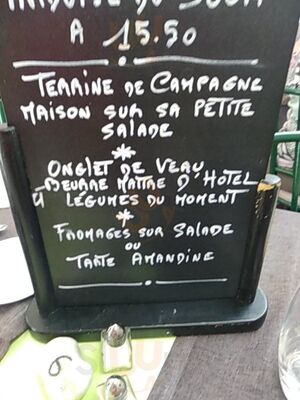 DU JOUR
A 15.50
TERRINE DE CAMPAGNE
MAISON SUR SA PETITE
SALADE
*
ONGLET DE VEAU
BEURRE MAITRE D'HOTEL
LÉGUMES DU MOMENT
*
FROMAGES SUR SALADE
OU
TARTE AMANDINE